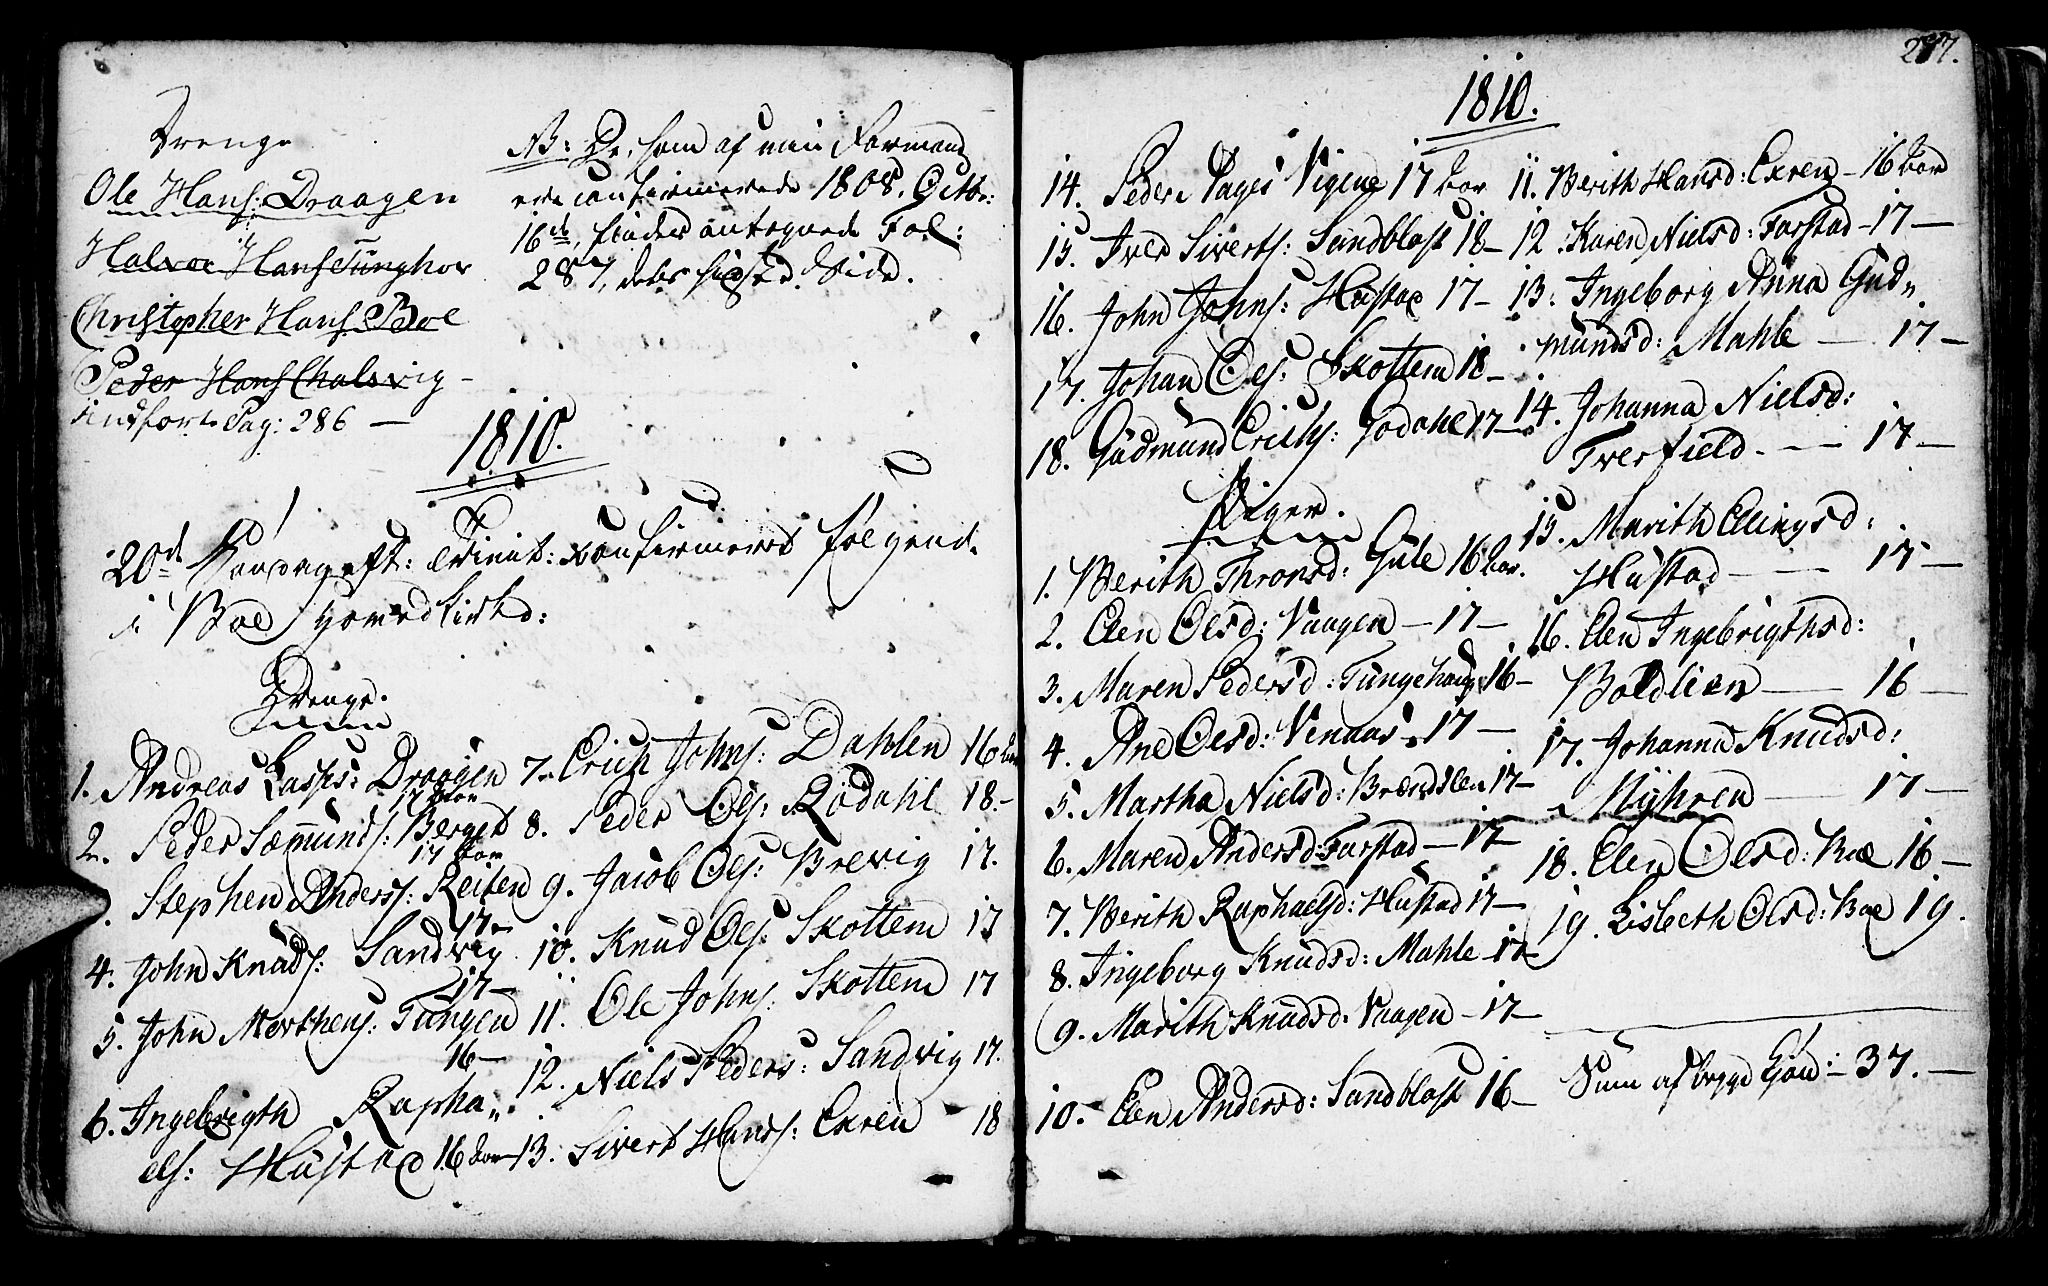 Drenge
Ole Hans: Draagen
Halvor Hans: Tunghov
Christopher Hans: Boe
Peder Hans Chalsvig
indført Pag: 286 —
NB: De, som af min Formand
ere confirmerede 1808. Octbr:
16de, findes antegnede Fol:
287, dets sidste Side.
1810.
20de Søndag eft: Trinit: confirmeret følgende
i Boe Hovedkirke:
Drenge.
1. Andreas Lasses: Draagen
17 Aar
2. Peder Sæmunds: Berget
17 Aar
Stephen Anders: Reiten
17 —
4. John Knuds: Sandvig
17 —
5. John Morthens: Tungen
16 —
6. Ingebrigth Rapha„
els: Hustad 16 Aar
7. Erich Johns: Dahlen 16 Aar
8. Peder Ols: Rødahl 18 —
9. Jacob Ols: Brevig 17.
10. Knud Ols: Skottem 17
11. Ole Johns: Skottem 17
12. Niels Peders: Sandvig 17.
13. Sivert Hans: Exren 18
297.
1810.
14. Peder Aages Vigene 17 Aar
15. Iver Siverts: Sandblost 18 —
16. John Johns: Hustad 17 —
17. Johan Ols: Skottem 18 —
18. Gudmund Erichs: Godahl 17 —
Piger.
1. Berith Thronsd: Gule 16 Aar.
2. Elen Olsd: Vaagen — 17 —
3. Maren Pedersd: Tungehaug 16 —
4. Ane Olsd: Venaas — 17 —
5. Martha Nielsd: 17 —
6. Maren Andersd: Farstad — 17 —
7. Berith Raphaelsd: Hustad 17 —
8. Ingeborg Knudsd: Mahle — 17 —
9. Marith Knudsd: Vaagen — 17 —
10. Elen Andersd: Sandblost 16 —
11. Berith Hansd: Exren — 16 Aar
12. Karen Nielsd: Farstad — 17 —
13. Ingeborg Anna Gud„
mundsd: Mahle — 17 —
14. Johanna Nielsd:
Tverfield — 17 —
15. Marith Ellingsd:
Hustad — 17 —
16. Elen Ingebrigthsd:
Boldlien — 16 —
17. Johanna Knudsd:
Myhren — 17 —
18. Elen Olsd: Boe 16 —
19. Lisbeth Olsd: Boe 19.
Sum af begge Kjøn: 37. —